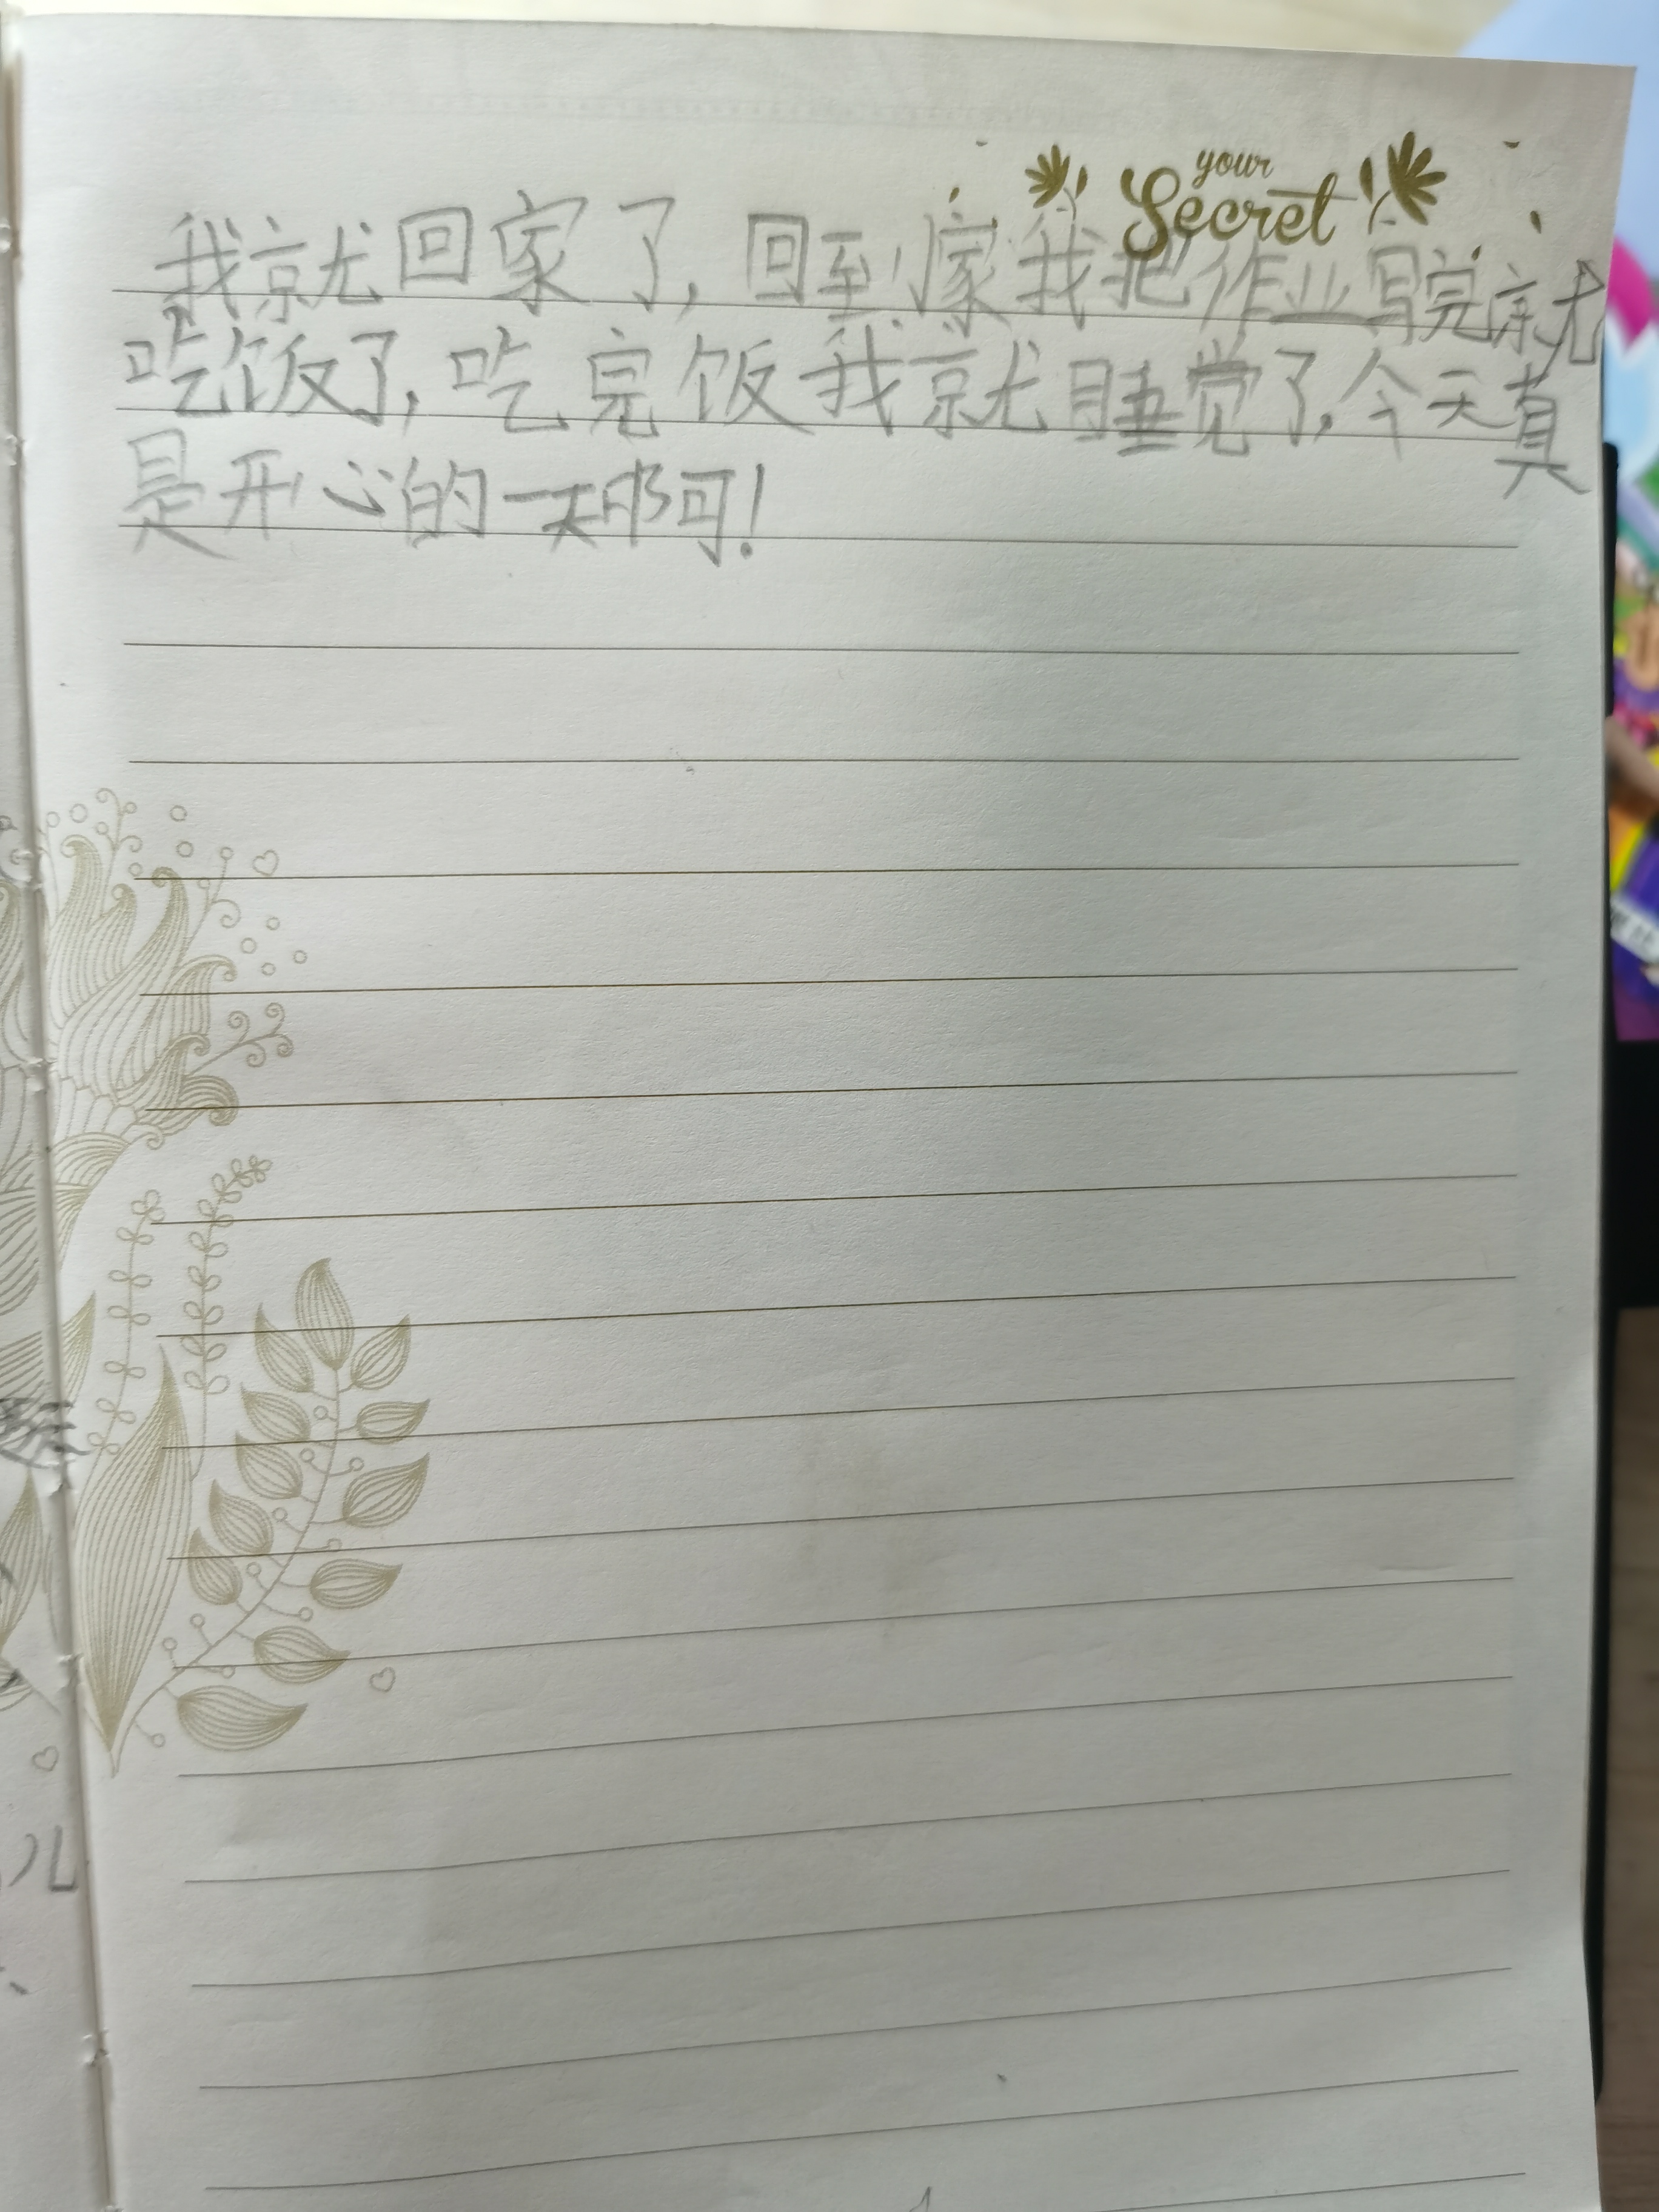 your
Secret
我就回家了,回到家我把作业写完就
吃饭了,吃完饭我就睡觉了,今天真
是开心的一天啊!
儿